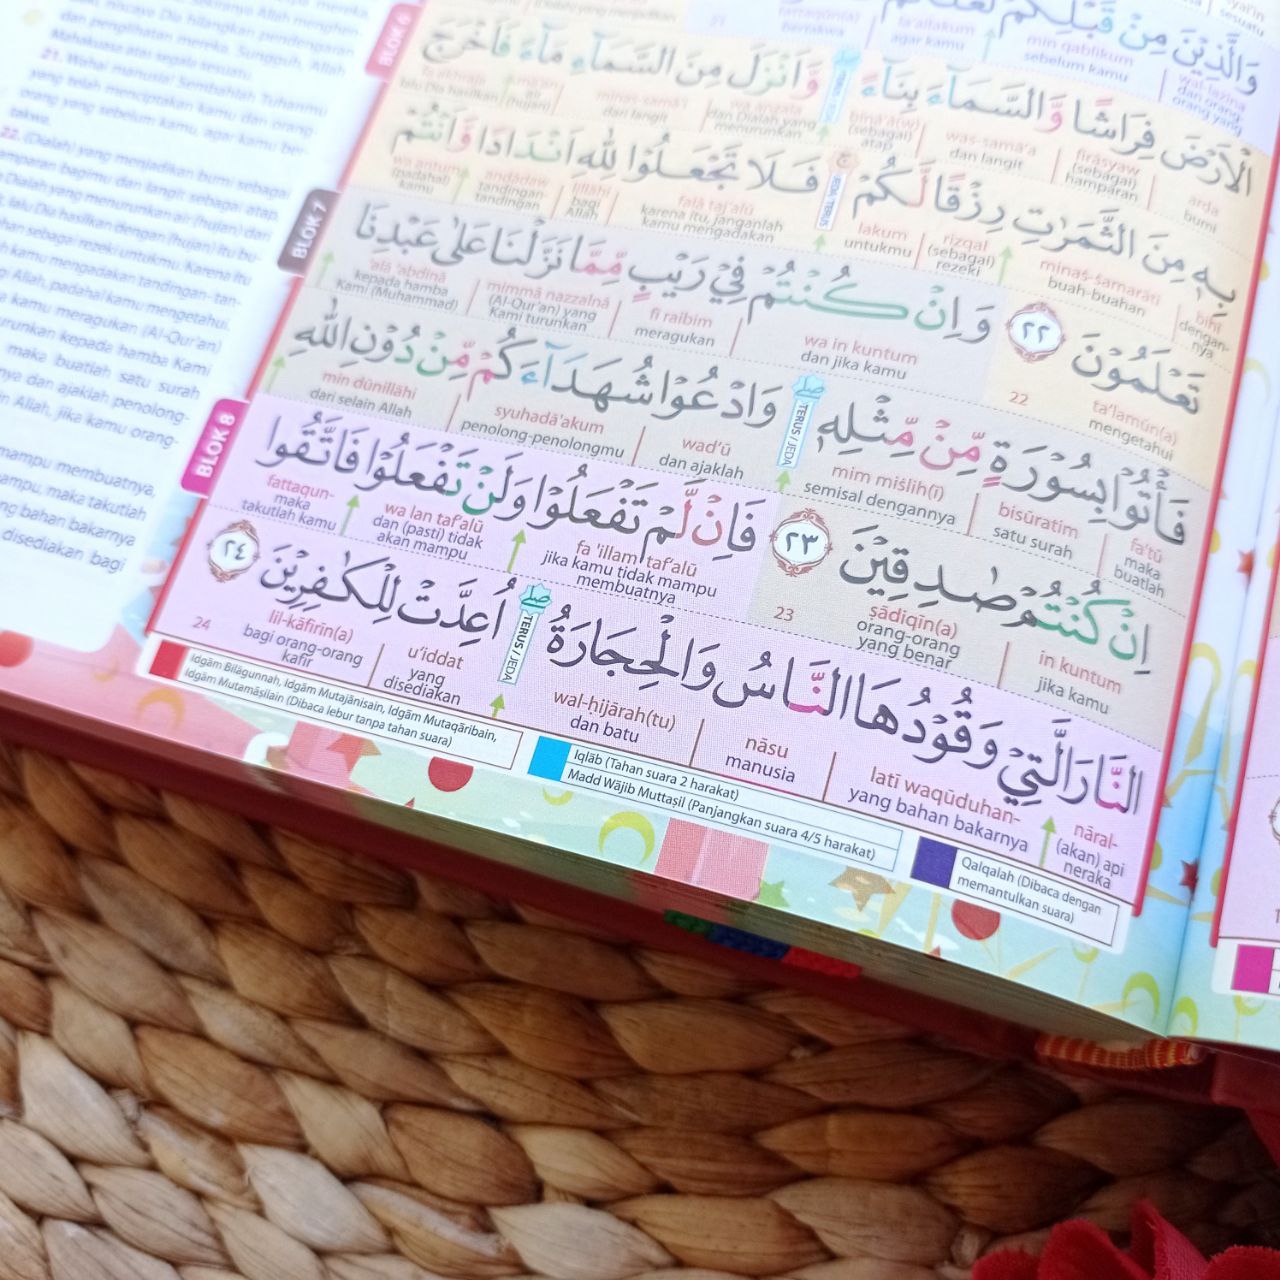 mereka,
Sekiranya Allah menghen-
niscaya Dia hilangkan pendengaran
dan penglihatan mereka. Sungguh, Allah
Mahakuasa atas segala sesuatu.
21. Wahai manusia! Sembahlah Tuhanmu
yang telah menciptakan kamu dan orang-
orang yang sebelum kamu, agar kamu ber-
takwa.
22. (Dialah) yang menjadikan bumi sebagai
hamparan bagimu dan langit sebagai atap,
Dialah yang menurunkan air (hujan) dari
lalu Dia hasilkan dengan (hujan) itu bu-
sebagai rezeki untukmu. Karena itu
Allah, padahal kamu mengetahui.
kamu meragukan (Al-Qur'an)
kepada hamba Kami
maka buatlah satu surah
dan ajaklah penolong-
Allah, jika kamu orang-
mampu membuatnya,
maka takutlah
bahan bakarnya
disediakan bagi
BLOK 6
BLOK 7
BLOK 8
وَالَّذِيْنَ مِنْ قَبْلِكُمْ لَعَلَّكُمْ
wal-lażīna
dan orang-orang yang
min qablikum
sebelum kamu
la'allakum
agar kamu
tattaqūn(a)
bertakwa
21
الْاَرْضَ فِرَاشًا وَّالسَّمَاۤءَ بِنَاۤءً وَّاَنْزَلَ مِنَ السَّمَاۤءِ مَاۤءً فَاَخْرَجَ
arḍa
bumi
firāsyaw
(sebagai) hamparan
was-samā'a
dan langit
binā'a(w)
(sebagai) atap
wa anzala
dan Dialah yang menurunkan
minas-samā'i
dari langit
mā'an
air (hujan)
fa akhraja
lalu Dia hasilkan
بِهٖ مِنَ الثَّمَرٰتِ رِزْقًا لَّكُمْ ۚ فَلَا تَجْعَلُوْا لِلّٰهِ اَنْدَادًا وَّاَنْتُمْ
bihī
dengan-nya
minaṡ-ṡamarāti
buah-buahan
rizqal
(sebagai) rezeki
lakum
untukmu
JEDA/TERUS
falā taj'alū
karena itu, janganlah kamu mengadakan
lillāhi
bagi Allah
andādaw
tandingan-tandingan
wa antum
(padahal) kamu
تَعْلَمُوْنَ ٢٢ وَاِنْ كُنْتُمْ فِيْ رَيْبٍ مِّمَّا نَزَّلْنَا عَلٰى عَبْدِنَا
ta'lamūn(a)
mengetahui
22
wa in kuntum
dan jika kamu
fī raibim
meragukan
mimmā nazzalnā
(Al-Qur'an) yang Kami turunkan
'alā 'abdinā
kepada hamba Kami (Muhammad)
فَأْتُوْا بِسُوْرَةٍ مِّنْ مِّثْلِهٖ ۖ وَادْعُوْا شُهَدَاۤءَكُمْ مِّنْ دُوْنِ اللّٰهِ
fa'tū
maka buatlah
bisūratim
satu surah
mim miṡlih(ī)
semisal dengannya
TERUS / JEDA
wad'ū
dan ajaklah
syuhadā'akum
penolong-penolongmu
min dūnillāhi
dari selain Allah
اِنْ كُنْتُمْ صٰدِقِيْنَ ٢٣ فَاِنْ لَّمْ تَفْعَلُوْا وَلَنْ تَفْعَلُوْا فَاتَّقُوا
in kuntum
jika kamu
ṣādiqīn(a)
orang-orang yang benar
23
fa 'illam taf'alū
jika kamu tidak mampu membuatnya
wa lan taf'alū
dan (pasti) tidak akan mampu
fattaqun-
maka takutlah kamu
النَّارَ الَّتِيْ وَقُوْدُهَا النَّاسُ وَالْحِجَارَةُ ۖ اُعِدَّتْ لِلْكٰفِرِيْنَ ٢٤
nāral-
(akan) api neraka
latī waqūduhan-
yang bahan bakarnya
nāsu
manusia
wal-ḥijārah(tu)
dan batu
TERUS / JEDA
u'iddat
yang disediakan
lil-kāfirīn(a)
bagi orang-orang kafir
24
Idgām Bilāgunnah, Idgām Mutajānisain, Idgām Mutaqāribain,
Idgām Mutamāṡilain (Dibaca lebur tanpa tahan suara)
Iqlāb (Tahan suara 2 harakat)
Madd Wājib Muttaṣil (Panjangkan suara 4/5 harakat)
Qalqalah (Dibaca dengan
memantulkan suara)